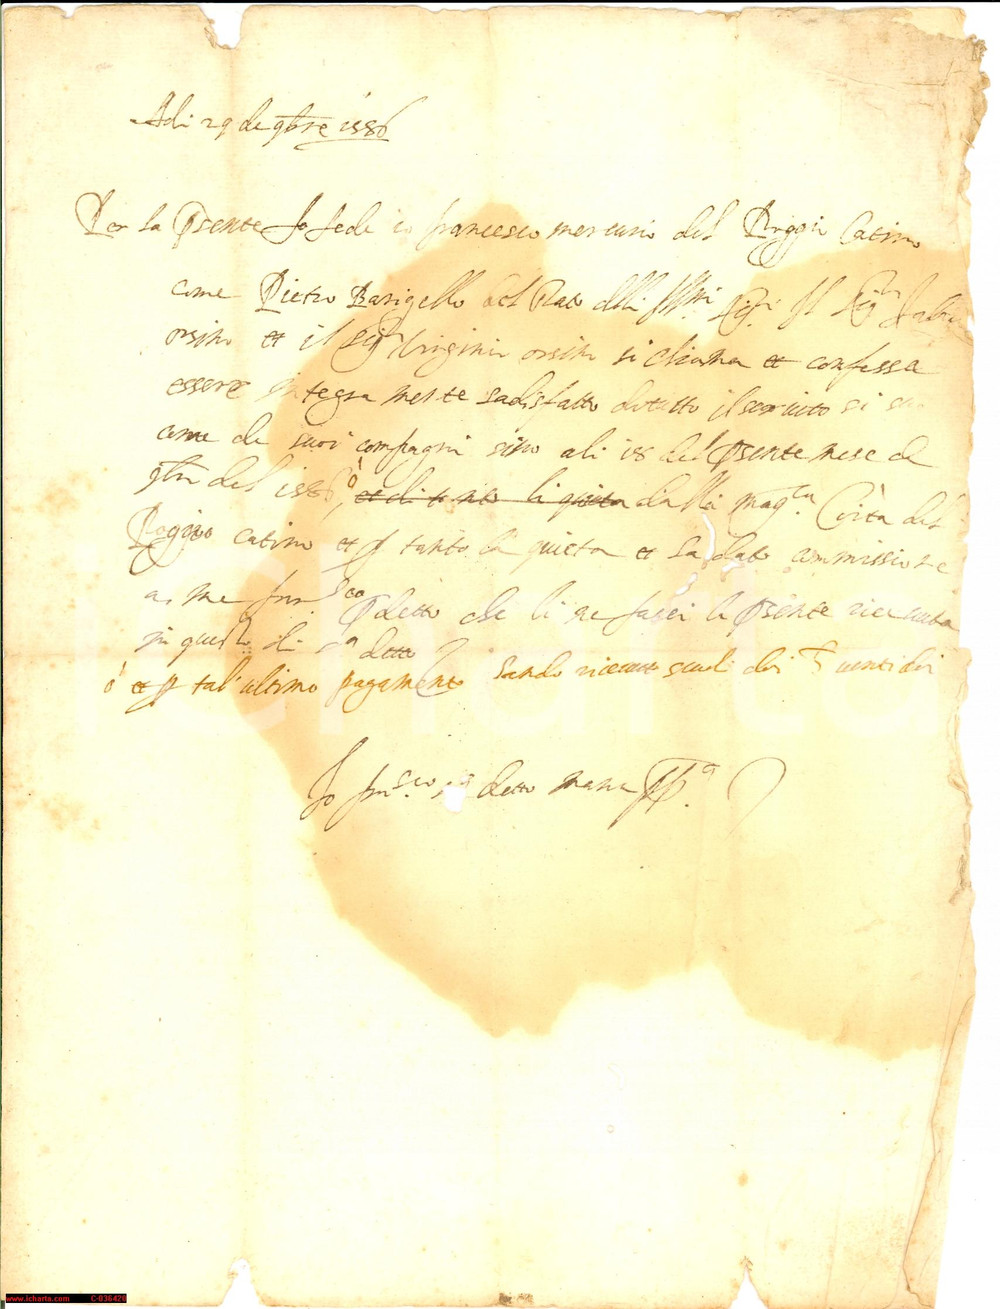 Adi 29 de 9bre 1586
Per la Psente fo fede io francesco mercurio del Poggio Catino
come Pietro Barigello del stato delli Illmi Sigri Il Sigr Fabio
orsino et il Sigr Virginio orsino si chiama et confessa
essere integra mente sadisfatto de tutto il servito si suo
come de suoi compagni sino ali 18 del psente mese de
9bre del 1586 et di tanto li quieta dalla magca Cõita del
Poggio catino et p tanto la quieta et ha dato commissione
a me franco pdetto che li ne facci la psente ricevuta
in questo di sa detto
et p tal' ultimo pagamento havdo ricevuti scudi doi venti doi
Io franco sa detto mano ppa
www.icharta.com C-036420
icharta